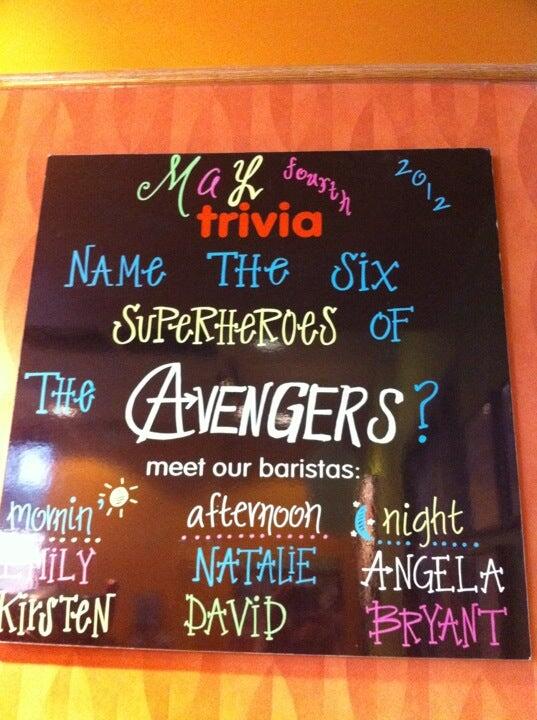 MAY fourth 2012
trivia
NAME THE SIX
SUPERHEROES OF
THE AVENGERS?
meet our baristas:
mornin' afternoon night
EMILY NATALIE ANGELA
KIRSTEN DAVID BRYANT